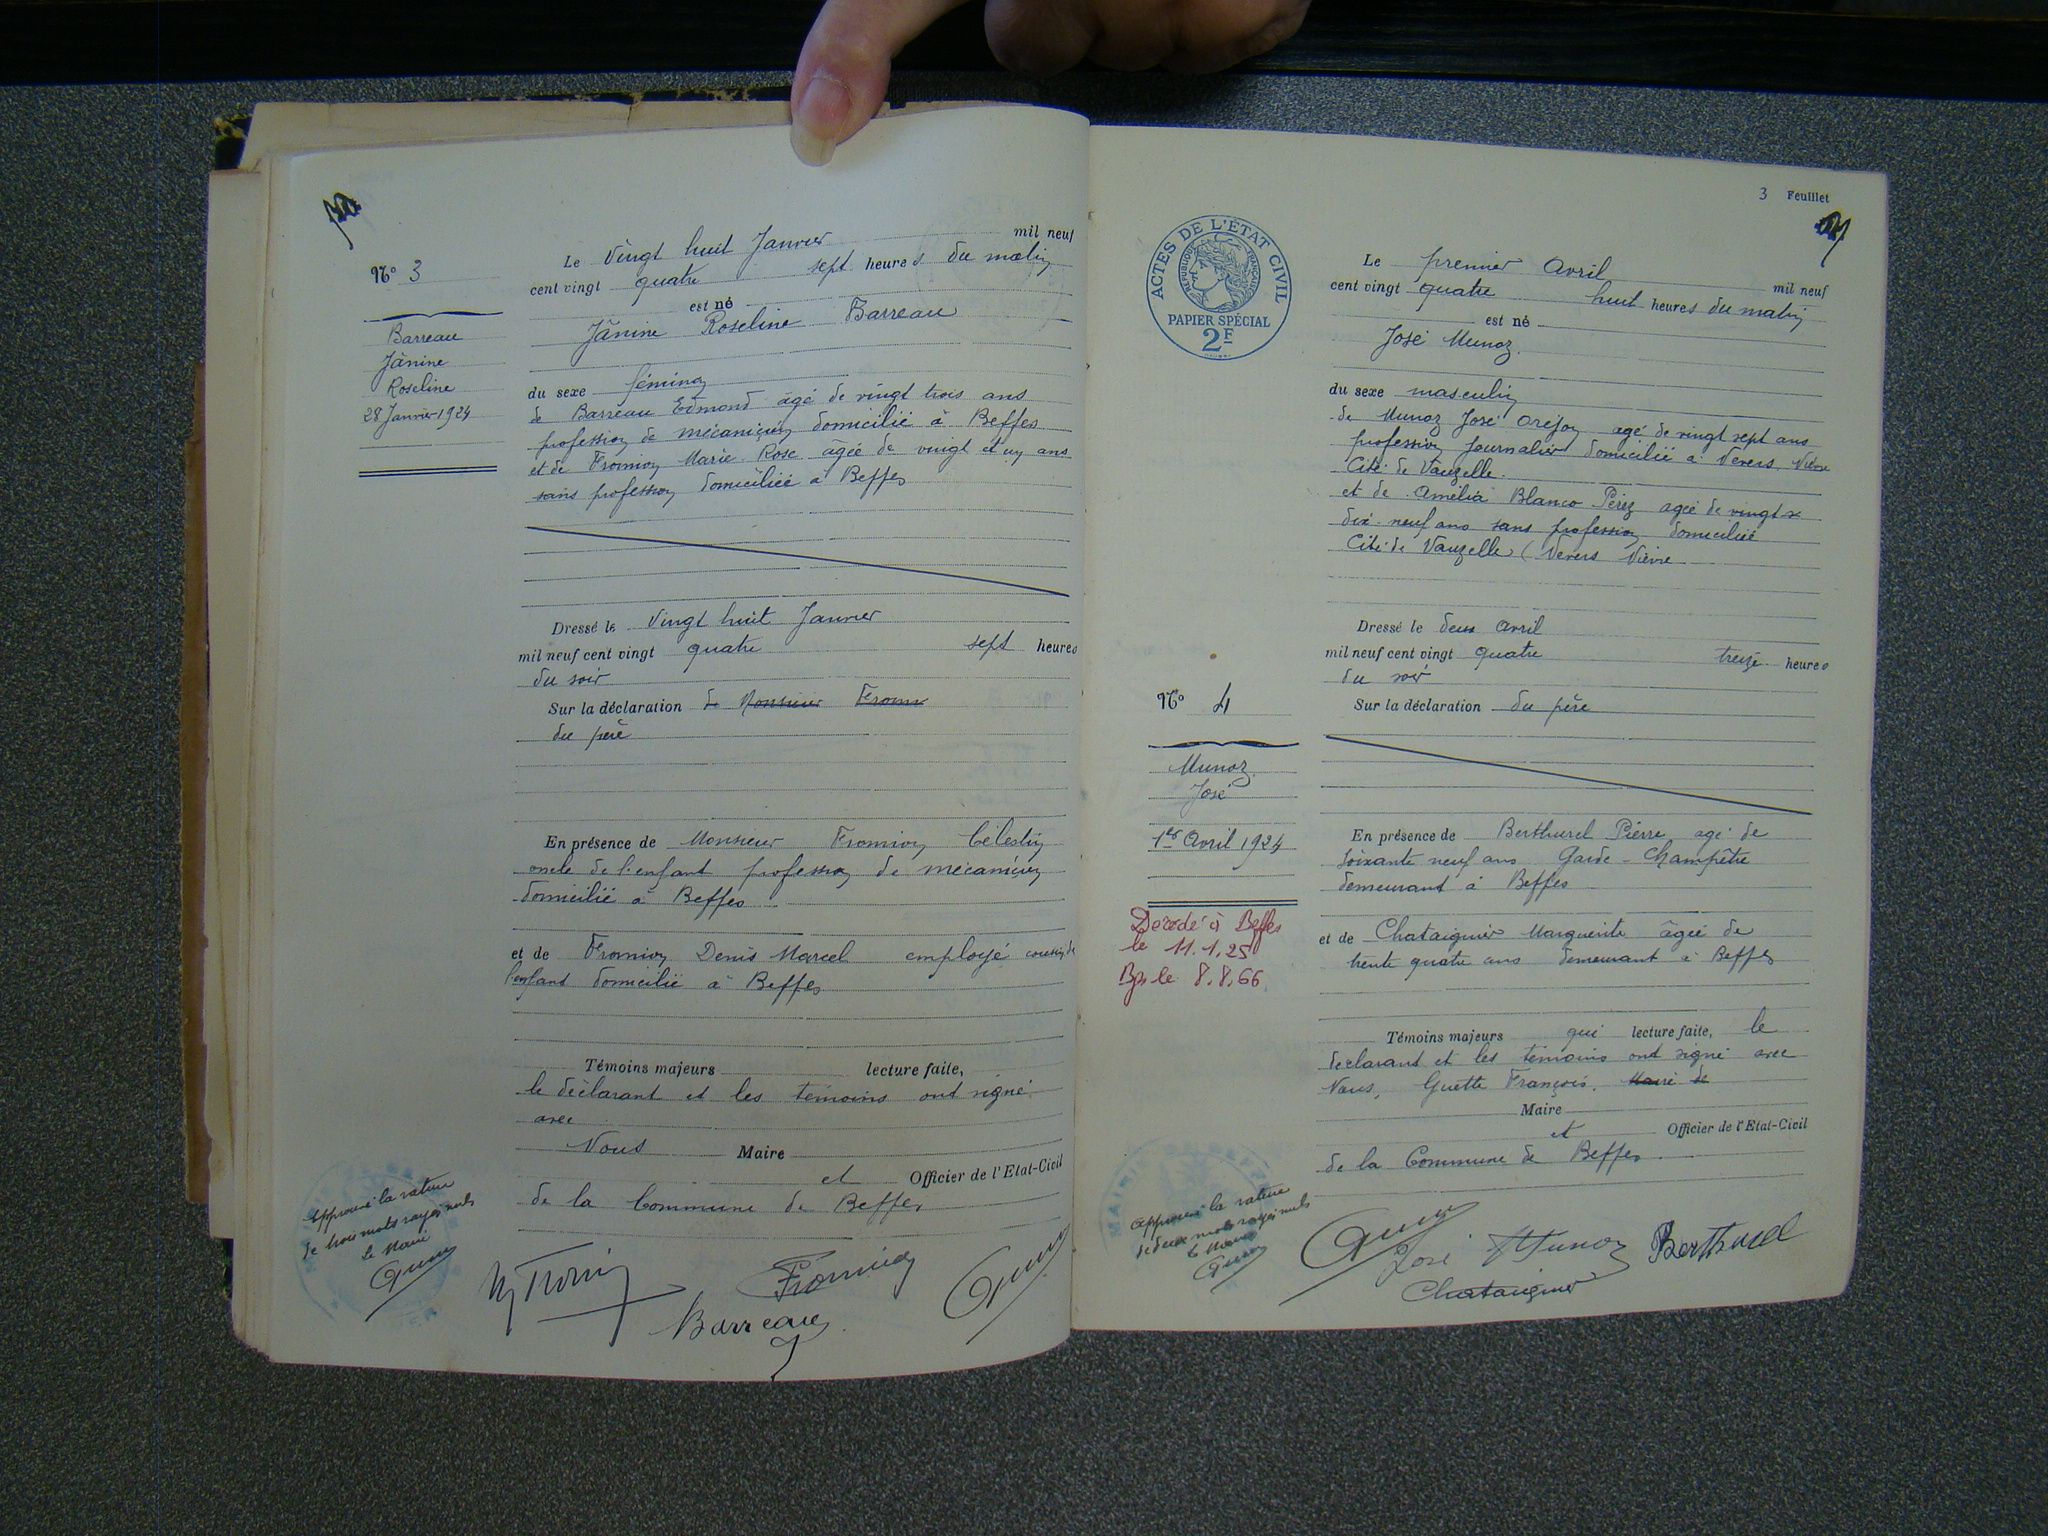 N° 3
Barreau
Jânine
Roseline
28 Janvier 1924
Le vingt huit Janvier mil neuf
cent vingt quatre sept heures du matin
est né
Jânine Roseline Barreau
du sexe féminin
de Barreau Edmond âgé de vingt trois ans
profession de mécanicien domicilié à Beffes
et de Fromion Marie Rose âgée de vingt et un ans
sans profession domiciliée à Beffes
Dressé le vingt huit Janvier
mil neuf cent vingt quatre sept heures
du soir
Sur la déclaration de Monsieur
du père
En présence de Monsieur Fromion Célestin
oncle de l'enfant profession de mécanicien
domicilié à Beffes
et de Fromion Denis Marcel employé cousin de
l'enfant domicilié à Beffes
Témoins majeurs lecture faite,
le déclarant et les témoins ont signé
avec
Nous Maire
et Officier de l'Etat-Civil
de la Commune de Beffes
Approuvé la rature
de trois mots rayés nuls
Le Maire
Fromion
Barreau
3 Feuillet
ACTES DE L'ÉTAT CIVIL
RÉPUBLIQUE FRANÇAISE
PAPIER SPÉCIAL
2F
Le premier Avril mil neuf
cent vingt quatre huit heures du matin
est né
José Munoz
du sexe masculin
de Munoz José Oréjon agé de vingt sept ans
profession Journalier domicilié à Nevers Nièvre
Cité de Vauzelle
et de Amélia Blanco Pérez agée de vingt
dix-neuf ans sans profession domiciliée
Cité de Vauzelle (Nevers Nièvre
Dressé le deux Avril
mil neuf cent vingt quatre treize heures
du soir
Sur la déclaration du père
N° 4
Munoz
José
1er Avril 1924
Décédé à Beffes
le 11.1.25
le 8.8.66
En présence de Berthurel Pierre agé de
soixante neuf ans Garde-Champêtre
demeurant à Beffes
et de Chataignier Marguerite âgée de
trente quatre ans demeurant à Beffes
Témoins majeurs qui lecture faite, le
déclarant et les témoins ont signé avec
Nous, Guette François. Maire de
Maire
et Officier de l'Etat-Civil
de la Commune de Beffes
Approuvé la rature
de deux mots rayés nuls
Le Maire
José Munoz Berthurel
Chataignier